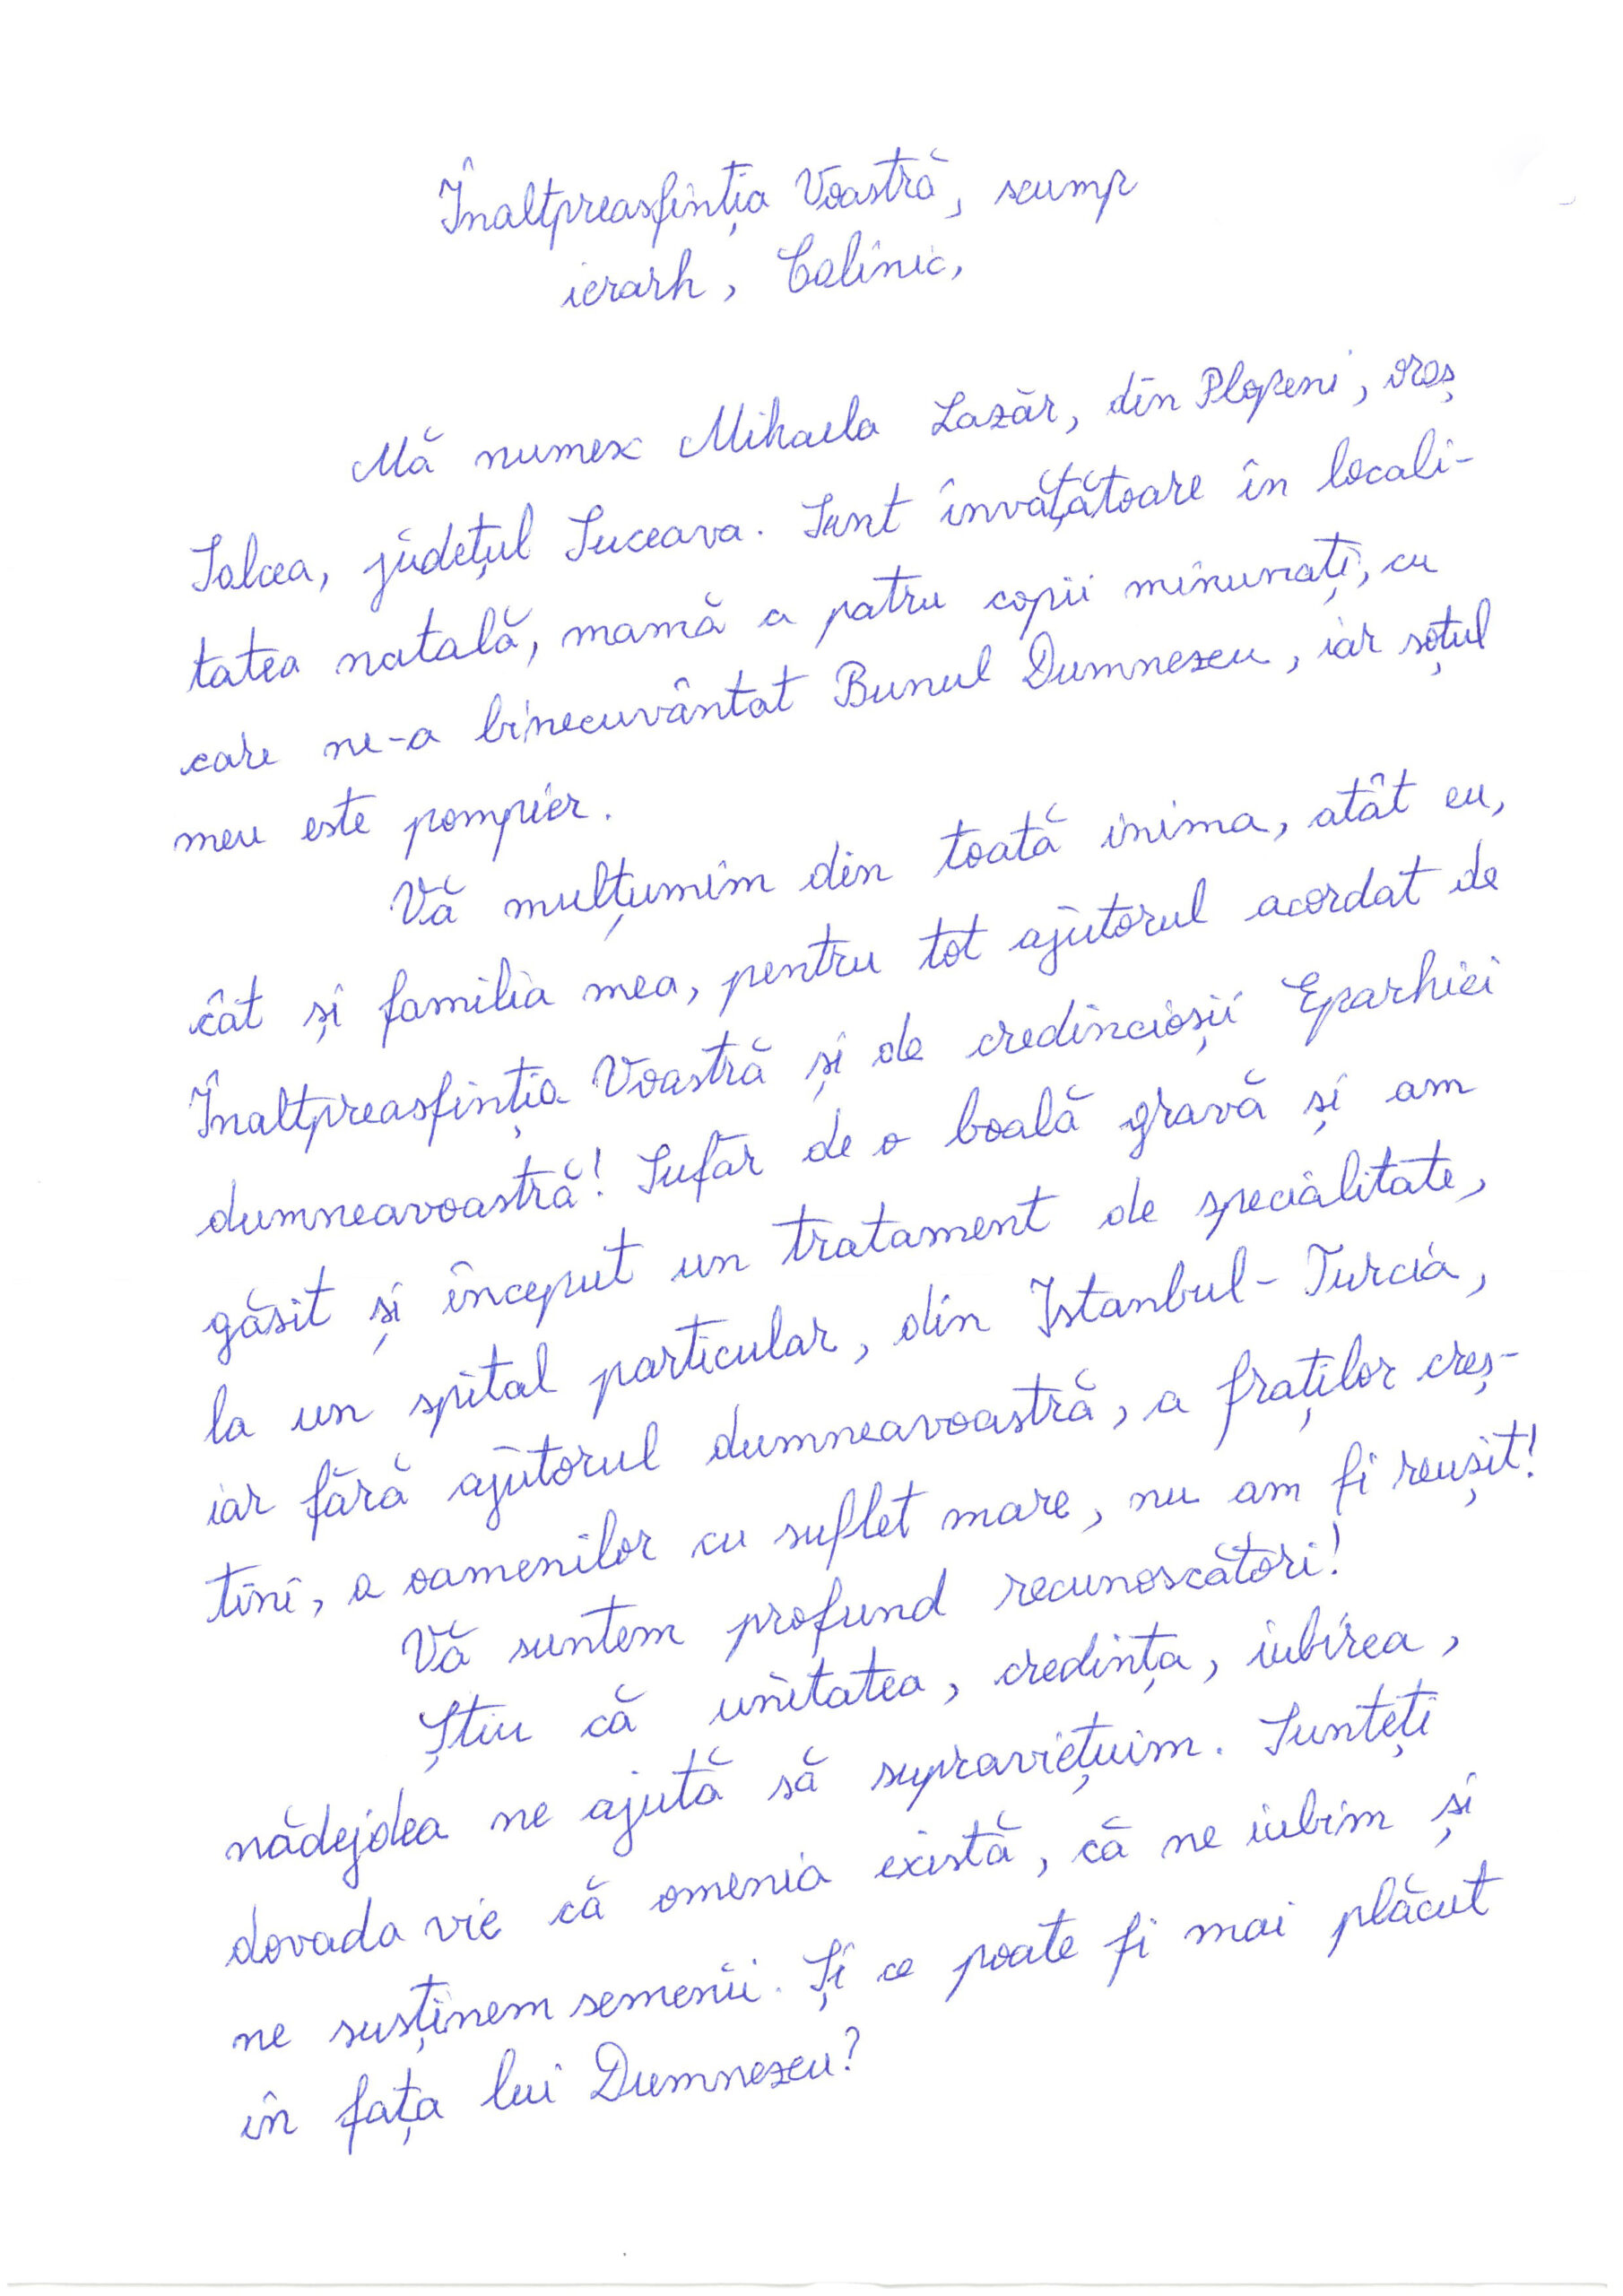 Înaltpreasfinția Voastră, scump
ierarh, Calinic,
Mă numesc Mihaela Lazăr, din Plopeni, oraș
Solcea, județul Suceava. Sunt învățătoare în locali-
tatea natală, mamă a patru copii minunați, cu
care ne-a binecuvântat Bunul Dumnezeu, iar soțul
meu este pompier.
Vă mulțumim din toată inima, atât eu,
cât și familia mea, pentru tot ajutorul acordat de
Înaltpreasfinția Voastră și de credincioșii Eparhiei
dumneavoastră! Sufăr de o boală gravă și am
găsit și început un tratament de specialitate,
la un spital particular, din Istanbul-Turcia,
iar fără ajutorul dumneavoastră, a fraților creș-
tini, a oamenilor cu suflet mare, nu am fi reușit!
Vă suntem profund recunoscători!
Știu că unitatea, credința, iubirea,
nădejdea ne ajută să supraviețuim. Sunteți
dovada vie că omenia există, că ne iubim și
ne susținem semenii. Și ce poate fi mai plăcut
în fața lui Dumnezeu?